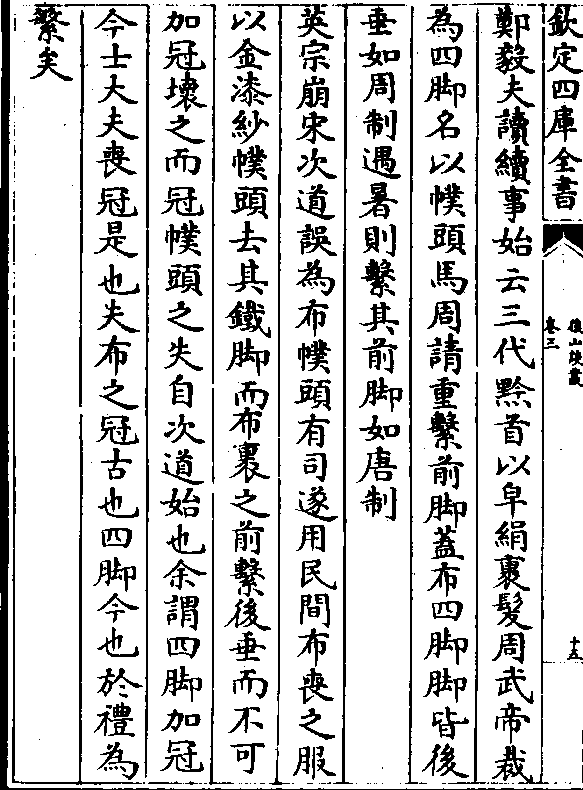 欽定四庫全書
後山談叢
卷三
十五
鄭毅夫讀續事始云三代黔首以皁絹裹髮周武帝裁
為四脚名以幞頭馬周請重繫前脚蓋布四脚脚皆後
垂如周制遇暑則繫其前脚如唐制
英宗崩宋次道誤為布幞頭有司遂用民間布喪之服
以金漆紗幞頭去其鐵脚而布裹之前繫後垂而不可
加冠壞之而冠幞頭之失自次道始也余謂四脚加冠
今士大夫喪冠是也夫布之冠古也四脚今也於禮為
繁矣